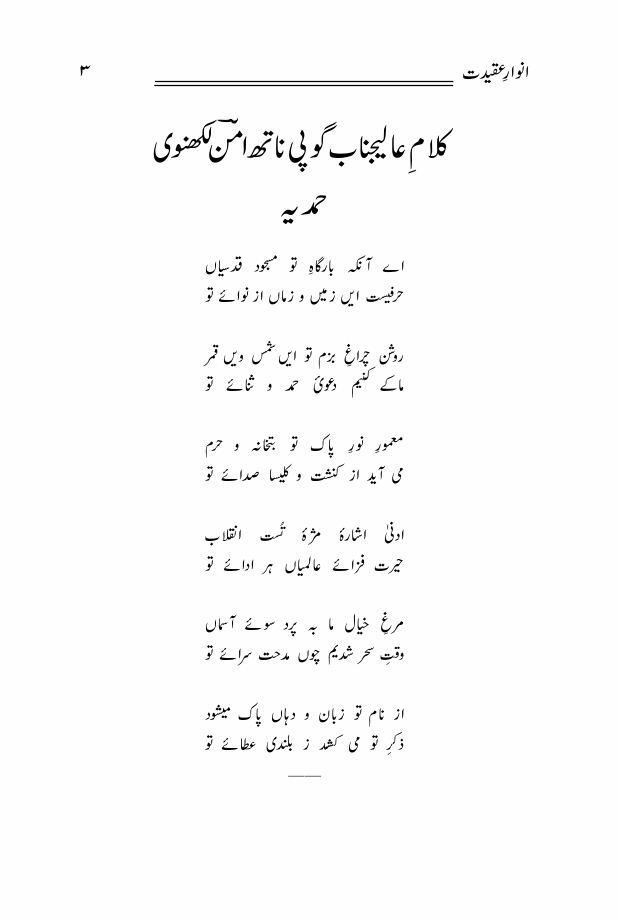 انوارِ عقیدت ۳
کلامِ عالیجناب گوپی ناتھ امنؔ لکھنوی
حمدیہ
اے آنکہ بارگاہِ تو مسجود قدسیاں
حرفیست ایں زمیں و زماں از نوائے تو
روشن چراغِ بزم تو ایں شمس ویں قمر
ماکے کنیم دعویٔ حمد و ثنائے تو
معمورِ نورِ پاک تو بتخانہ و حرم
می آید از کنشت و کلیسا صدائے تو
ادنیٰ اشارۂ مژۂ تُست انقلاب
حیرت فزائے عالمیاں ہر ادائے تو
مرغِ خیال ما بہ پرد سوئے آسماں
وقتِ سحر شدیم چوں مدحت سرائے تو
از نام تو زبان و دہاں پاک میشود
ذکرِ تو می کشد ز بلندی عطائے تو